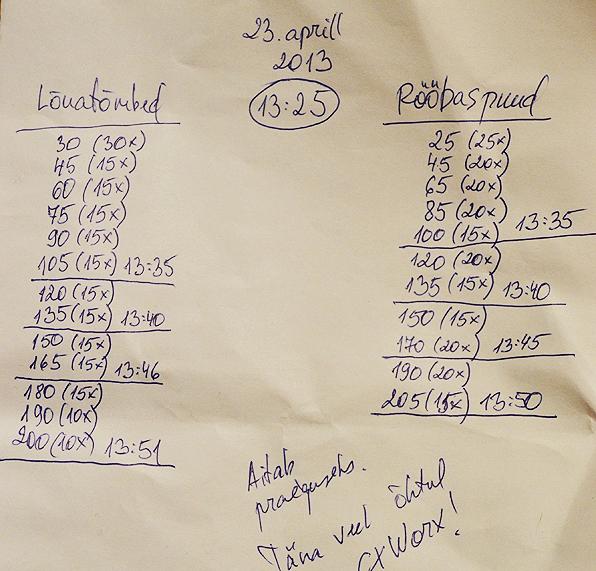 23. aprill
2013
13:25
Lõuatõmbed
30 (30x)
45 (15x)
60 (15x)
75 (15x)
90 (15x)
105 (15x) 13:35
120 (15x)
135 (15x) 13:40
150 (15x)
165 (15x) 13:46
180 (15x)
190 (10x)
200 (10x) 13:51
Rööbaspuud
25 (25x)
45 (20x)
65 (20x)
85 (20x)
100 (15x) 13:35
120 (20x)
135 (15x) 13:40
150 (15x)
170 (20x) 13:45
190 (20x)
205 (15x) 13:50
Aitab
praeguseks.
Täna veel õhtul
CXWorx!